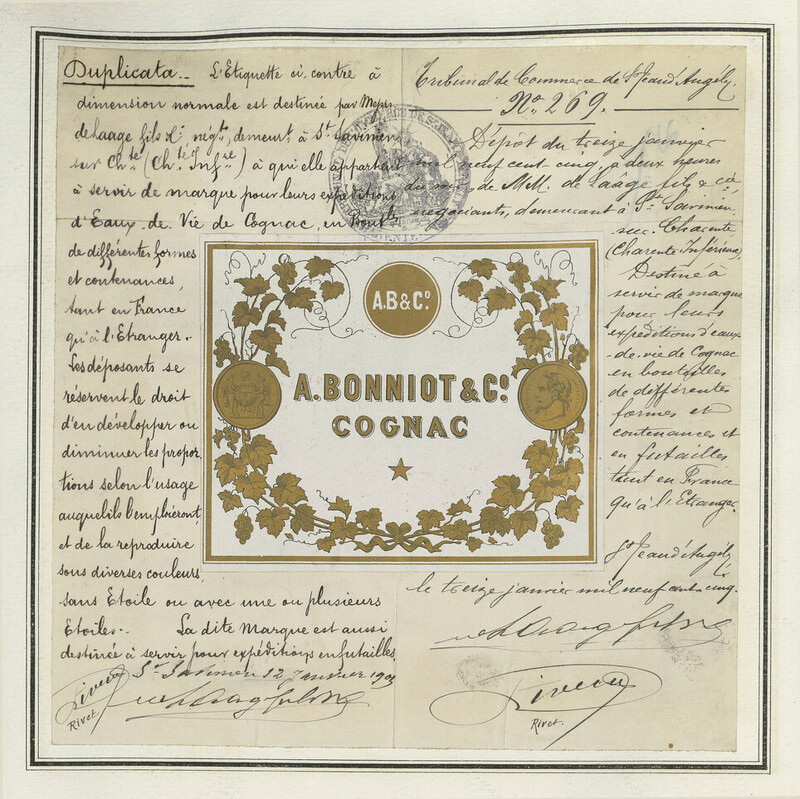 Duplicata.- L'Etiquette ci, contre à
dimension normale est destinée par Messrs
de Laage fils & Cie négts, demeurt à St Savinien
sur Chte (Chte Infre) à qui elle appartient
à servir de marque pour leurs expéditions
d'Eaux-de-Vie de Cognac, en Boutlles
de différentes formes
et contenances,
tant en France
qu'à l'Etranger.-
Les déposants se
réservent le droit
d'en développer ou
diminuer les propor
tions selon l'usage
auquel ils l'emploieront,
et de la reproduire
sous diverses couleurs,
sans Etoile ou avec une ou plusieurs
Etoiles.- La dite Marque est aussi
destinée à servir pour expéditions en futailles,
St Savinien 12 Janvier 1905
Rivet
A.B&Co
A.BONNIOT & Co.
COGNAC
Tribunal de Commerce de St Jean d'Angély.
No 269.
Dépôt du treize janvier
mil neuf cent cinq, à deux heures
du soir, de M.M. de Laâge fils & Cie,
négociants, demeurant à St Savinien
sur Charente
(Charente Inférieure)
Destiné à
servir de marque
pour leurs
expéditions d'eaux
-de-vie de Cognac
en bouteilles
de différentes
formes et
contenances et
en futailles
tant en France
qu'à l'Etranger.
St Jean d'Angély
le treize janvier mil neuf cent cinq.
Rivet.